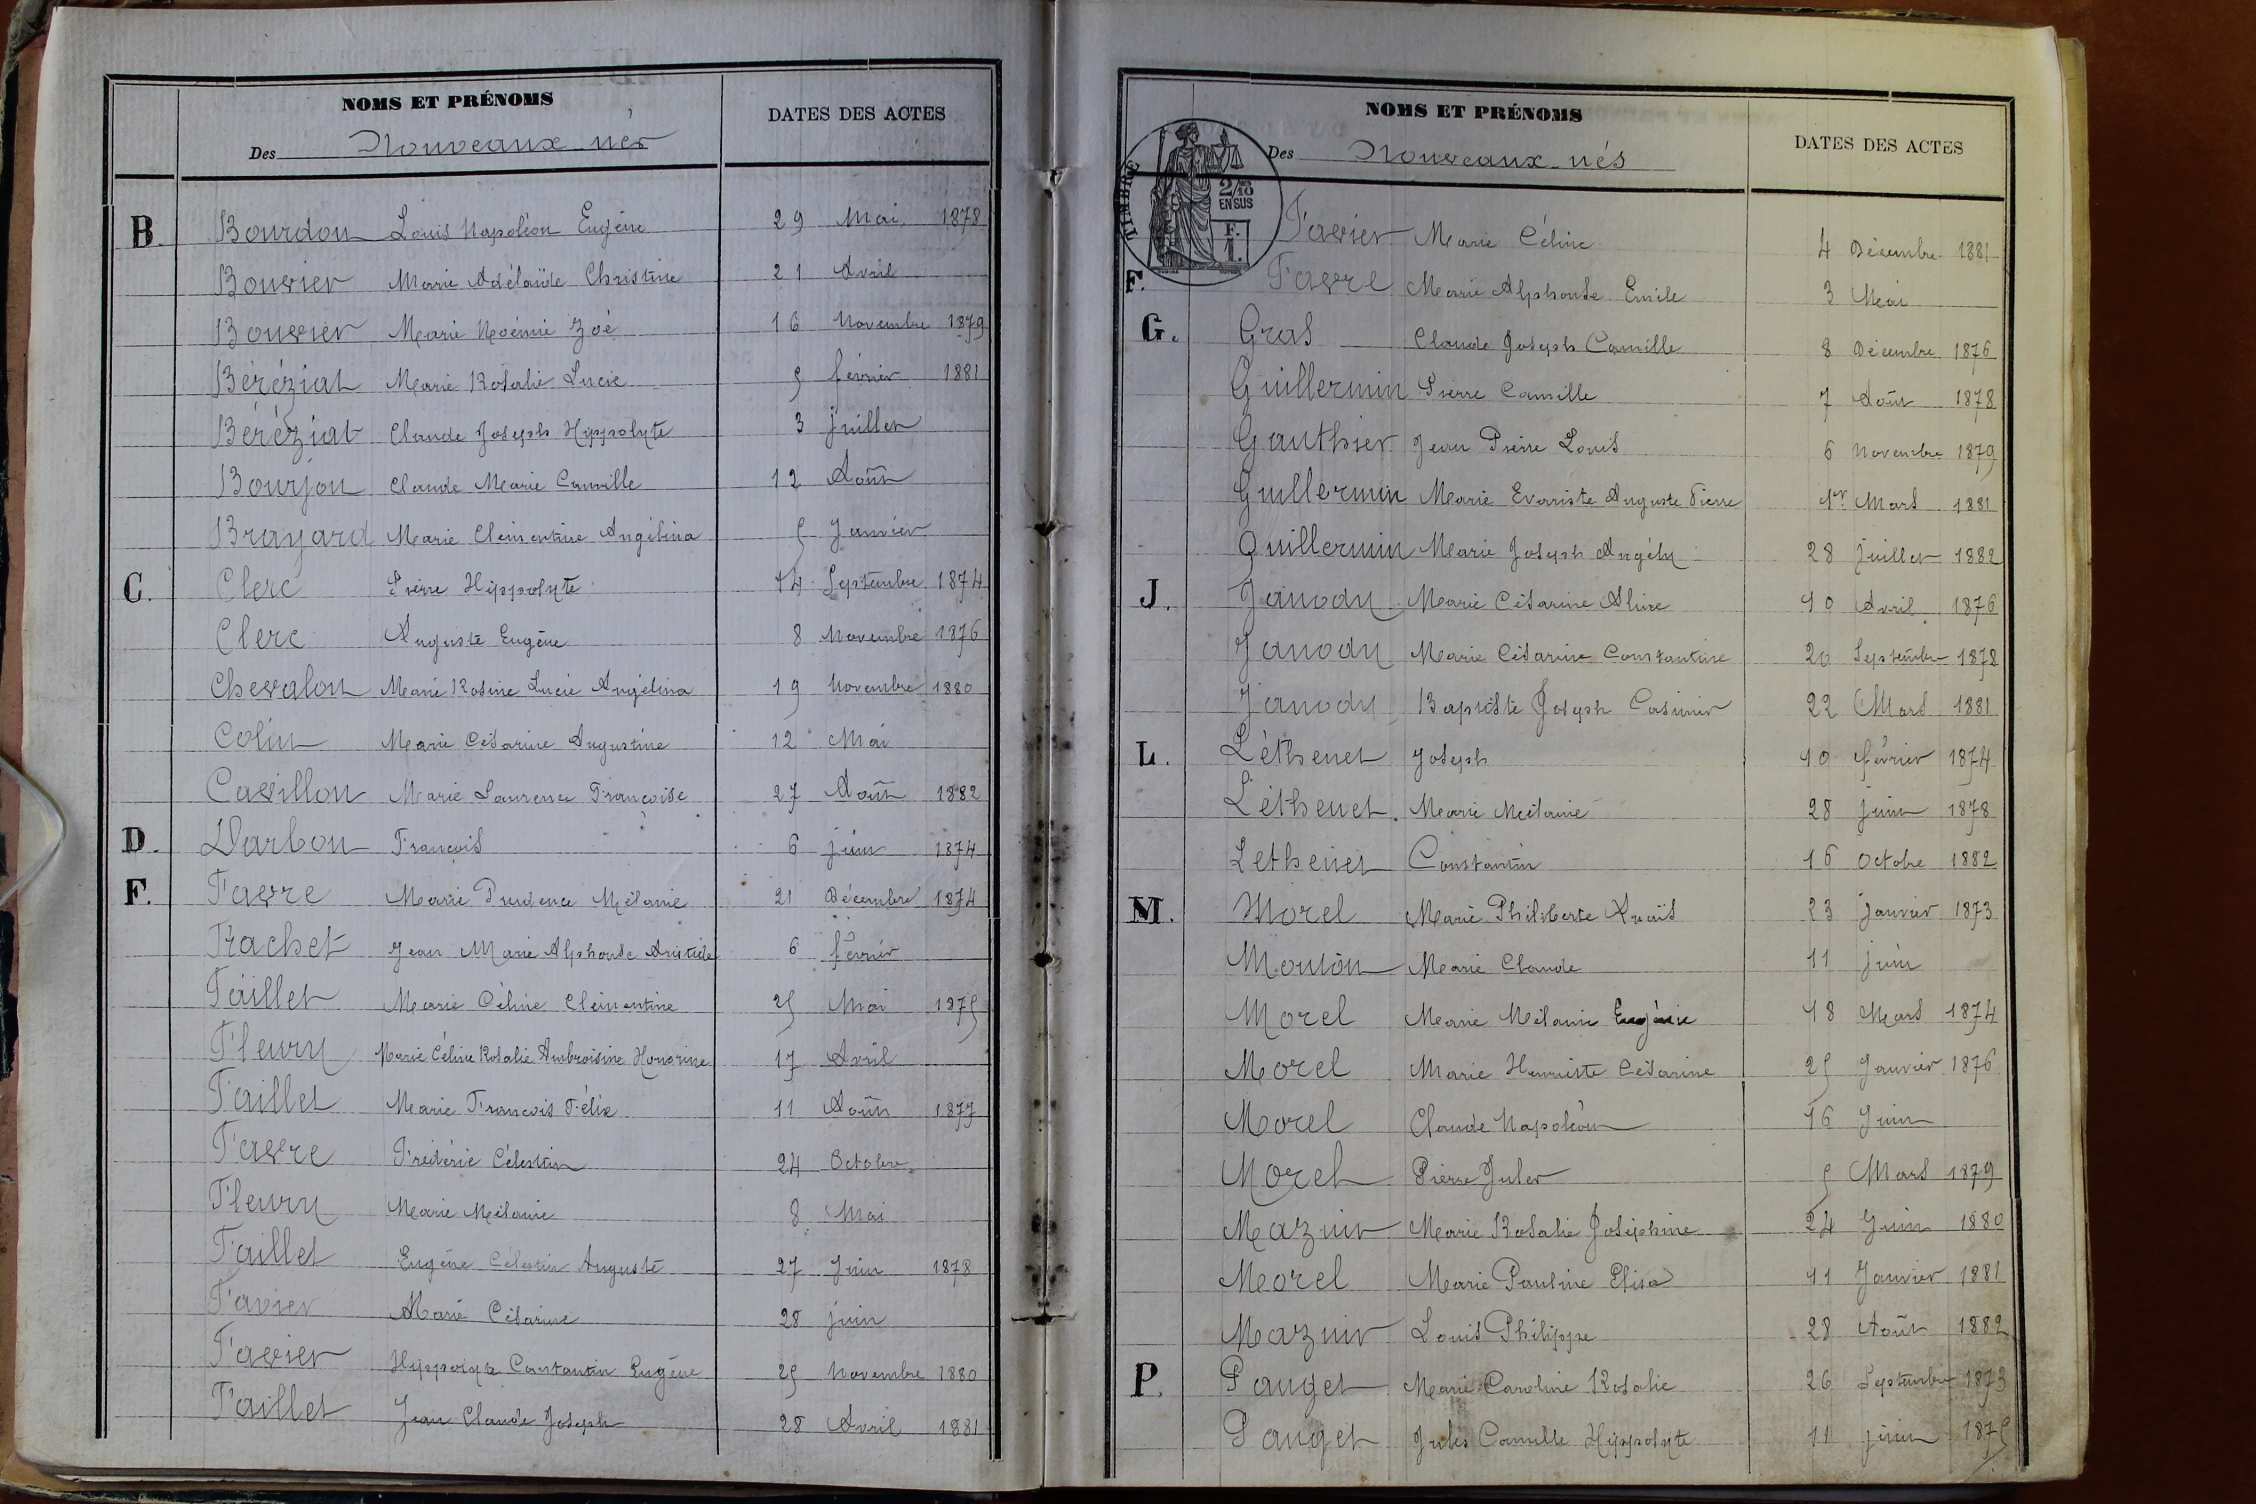 NOMS ET PRÉNOMS
DATES DES ACTES
Des Nouveaux-nés
B. Bourdon Louis Napoléon Eugène 29 Mai 1878
Bouvier Marie Adélaïde Christine 21 Avril
Bouvier Marie Noémie Zoé 16 Novembre 1879
Béréziat Marie Rosalie Lucie 5 février 1881
Béréziat Claude Joseph Hippolyte 3 juillet
Bourjon Claude Marie Camille 12 Août
Brayard Marie Clémentine Angélina 5 Janvier
C. Clerc Pierre Hippolyte 14 Septembre 1874
Clerc Auguste Eugène 8 Novembre 1876
Chevalon Marie Rosine Lucie Angélina 19 Novembre 1880
Colin Marie Césarine Augustine 12 Mai
Cavillon Marie Laurence Françoise 27 Août 1882
D. Darbon François 6 juin 1874
F. Favre Marie Prudence Mélanie 21 Décembre 1874
Frachet Jean Marie Alphonse Aristide 6 février
Faillet Marie Céline Clémentine 25 Mai 1875
Fleury Marie Céline Rosalie Ambroisine Honorine 17 Avril
Faillet Marie François Félix 11 Août 1877
Favre Frédéric Célestin 24 Octobre
Fleury Marie Mélanie 8 Mai
Faillet Eugène Célestin Auguste 27 Juin 1878
Favier Marie Césarine 28 juin
Favier Hippolyte Constantin Eugène 25 Novembre 1880
Faillet Jean Claude Joseph 28 Avril 1881
NOMS ET PRÉNOMS
DATES DES ACTES
Des Nouveaux-nés
TIMBRE
2/10
EN SUS
F.
1.
Favier Marie Céline 4 Décembre 1881
F. Favre Marie Alphonse Emile 3 Mai
G. Gras Claude Joseph Camille 8 Décembre 1876
Guillermin Pierre Camille 7 Août 1878
Gauthier Jean Pierre Louis 6 Novembre 1879
Guillermin Marie Evariste Auguste Pierre 1er Mars 1881
Guillermin Marie Joseph Angély 28 juillet 1882
J. Janody Marie Césarine Aline 10 Avril 1876
Janody Marie Césarine Constantine 20 Septembre 1878
Janody Baptiste Joseph Casimir 22 Mars 1881
L. Léthenet Joseph 10 février 1874
Léthenet Marie Mélanie 28 juin 1878
Lethenet Constantin 16 Octobre 1882
M. Morel Marie Philiberte 23 Janvier 1873
Mouton Marie Claude 11 juin
Morel Marie Mélanie Eugénie 18 Mars 1874
Morel Marie Henriette Césarine 25 Janvier 1876
Morel Claude Napoléon 16 Juin
Morel Pierre Jules 5 Mars 1879
Mazuir Marie Rosalie Joséphine 24 Juin 1880
Morel Marie Pauline Elisa 11 Janvier 1881
Mazuir Louis Philippe 28 Août 1882
P. Pauget Marie Caroline Rosalie 26 Septembre 1873
Pauget Jules Camille Hippolyte 11 juin 1875